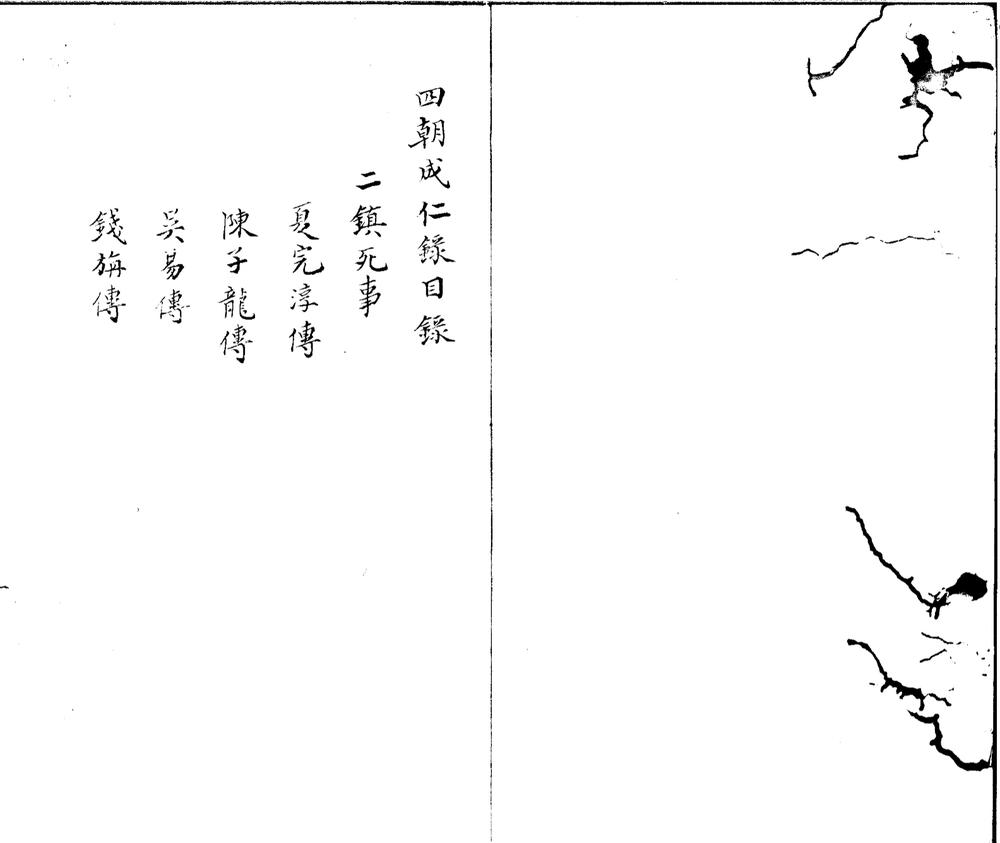 四朝成仁錄目錄
二鎮死事
夏完淳傳
陳子龍傳
吳昜傳
錢旃傳